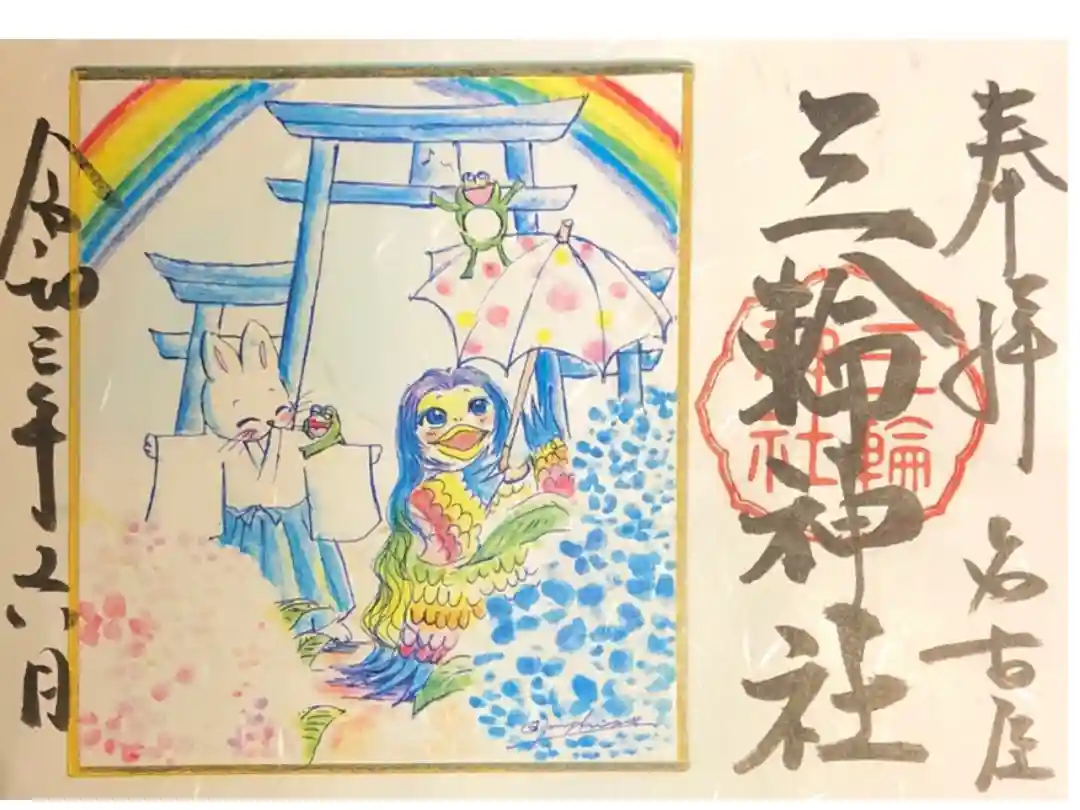 奉拝 名古屋
三輪神社
三輪
神社
令和三年六月